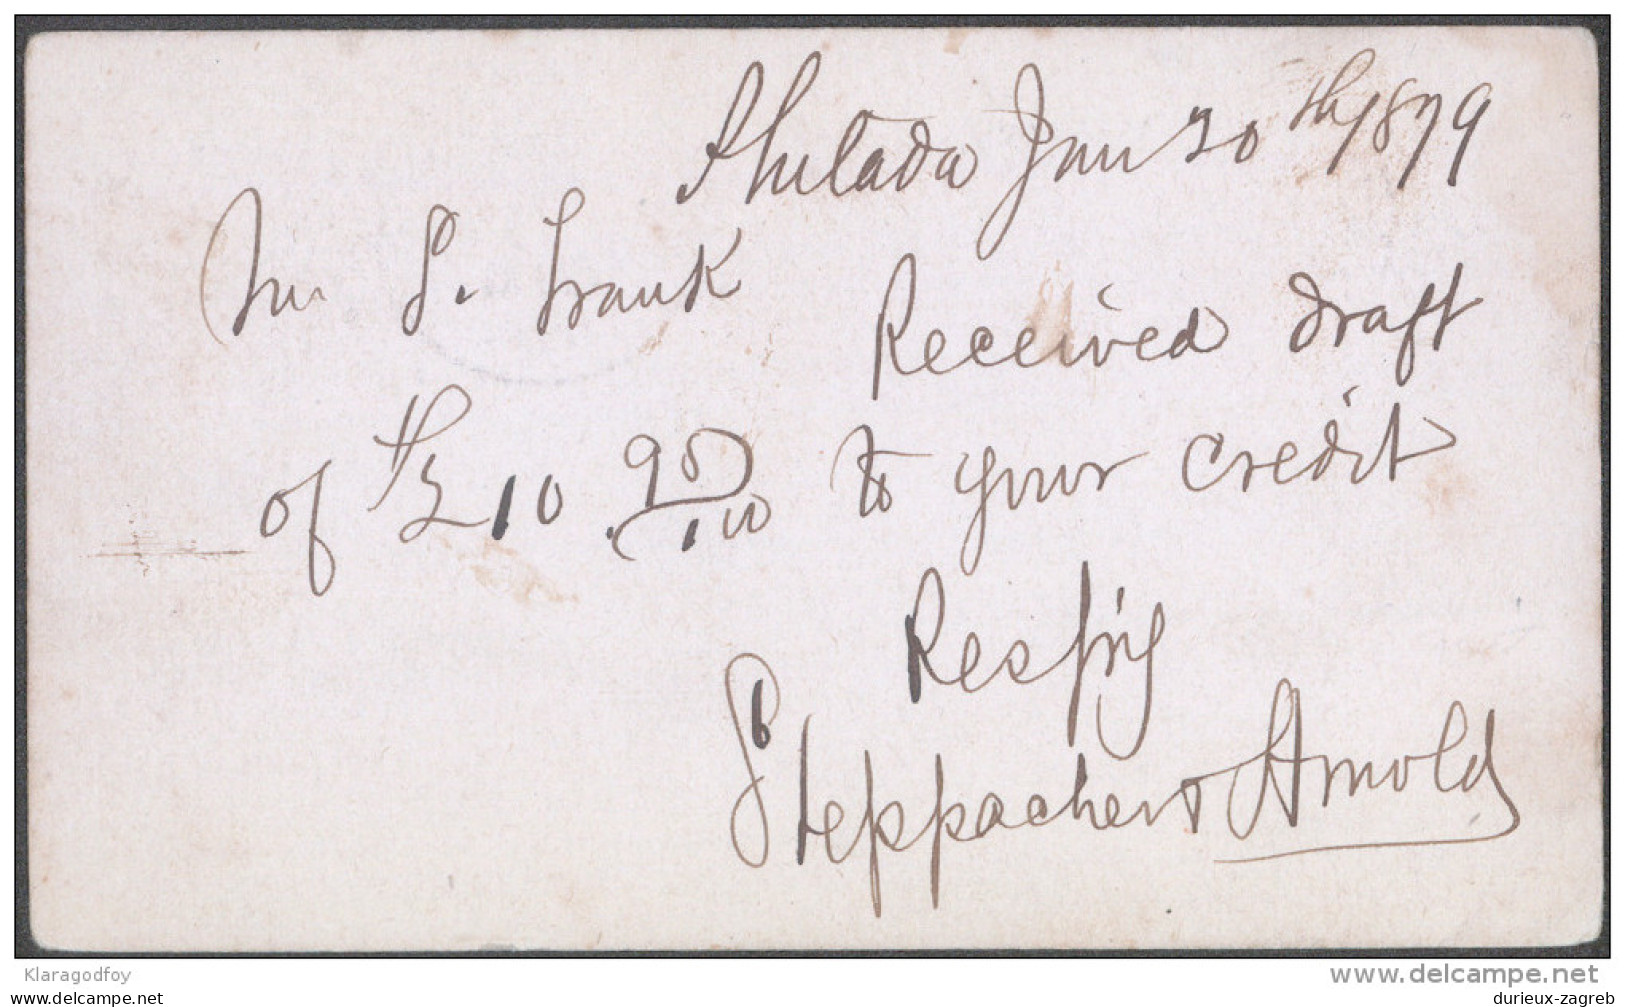 Philada Jan 20th 1879
Mr S. Frank
Received draft
of $210 95/100 to your credit
Respy
Steppacher & Arnold
Klaragodfoy
www.delcampe.net
durieux-zagreb